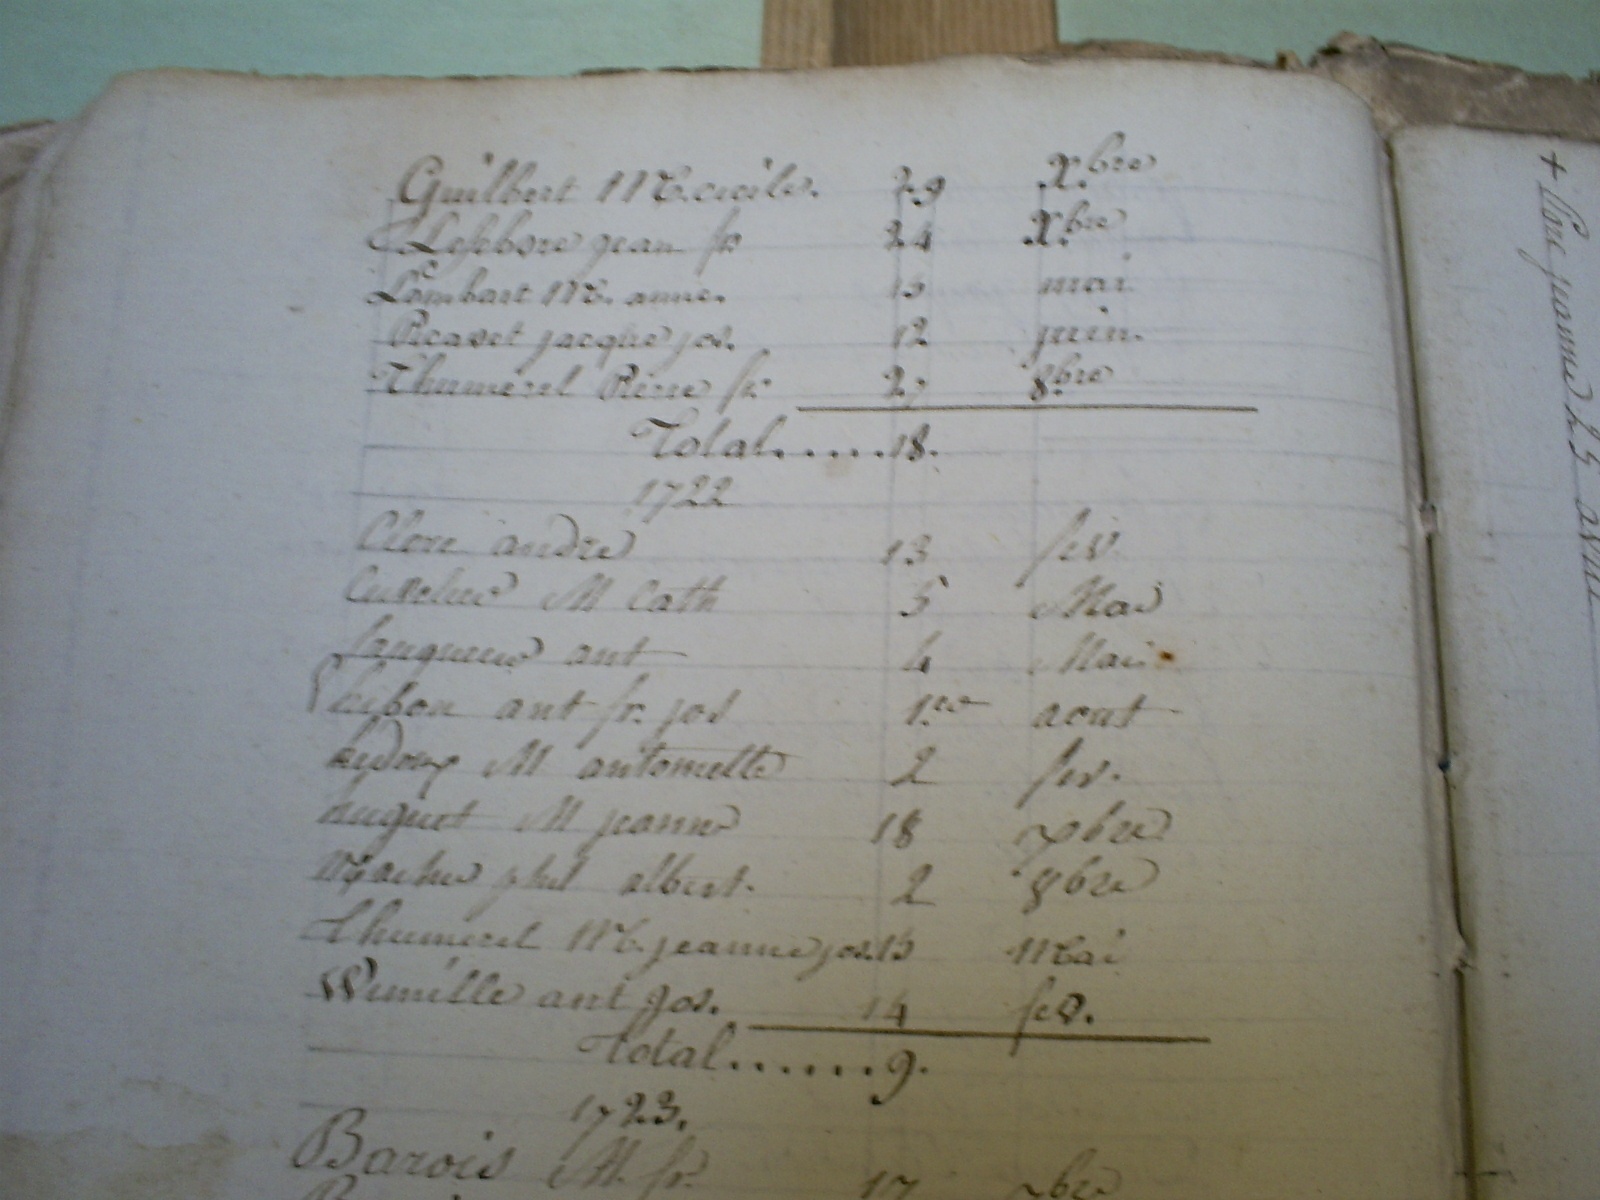 Guilbert M. cécile. 29 Xbre
Lefebvre jean fr. 24 Xbre
Lambart M. anne. 15 mai
Picavet jacque jos. 12 juin.
Thumerel Pierre fr. 27 8bre
Total.....18.
1722
Clore andré 13 fev
M Cath 5 Mai
ant 4 Mai
ant fr. jos 1.er aout
M antoinette 2 fev.
huguet M jeanne 18 7bre
phil albert. 2 8bre
Thumerel M. jeanne jos. 15 Mai
Wuuille ant jos. 14 fev.
Total......9.
1723.
Barois M. fr. 17 7bre
+ Clore jeanne 25 avril